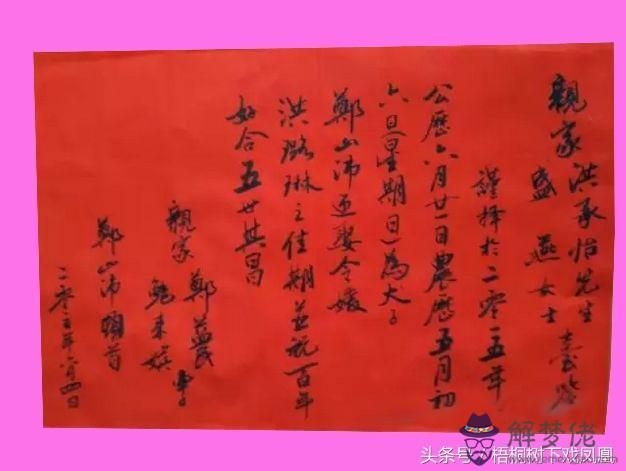 親家洪承怡先生臺鉴
盛燕女士
謹擇於二零一五年
公歷六月廿一日農歷五月初
六日星期日為大子
鄭山沛迎娶令媛
洪璐琳之佳期並祝百年
好合五世其昌
親家鄭益民
鲍来嬪
鄭山沛頓首
二零一五年六月四日
解梦佬
www.jiemenglao.com
头条号／梧桐树下戏凤凰